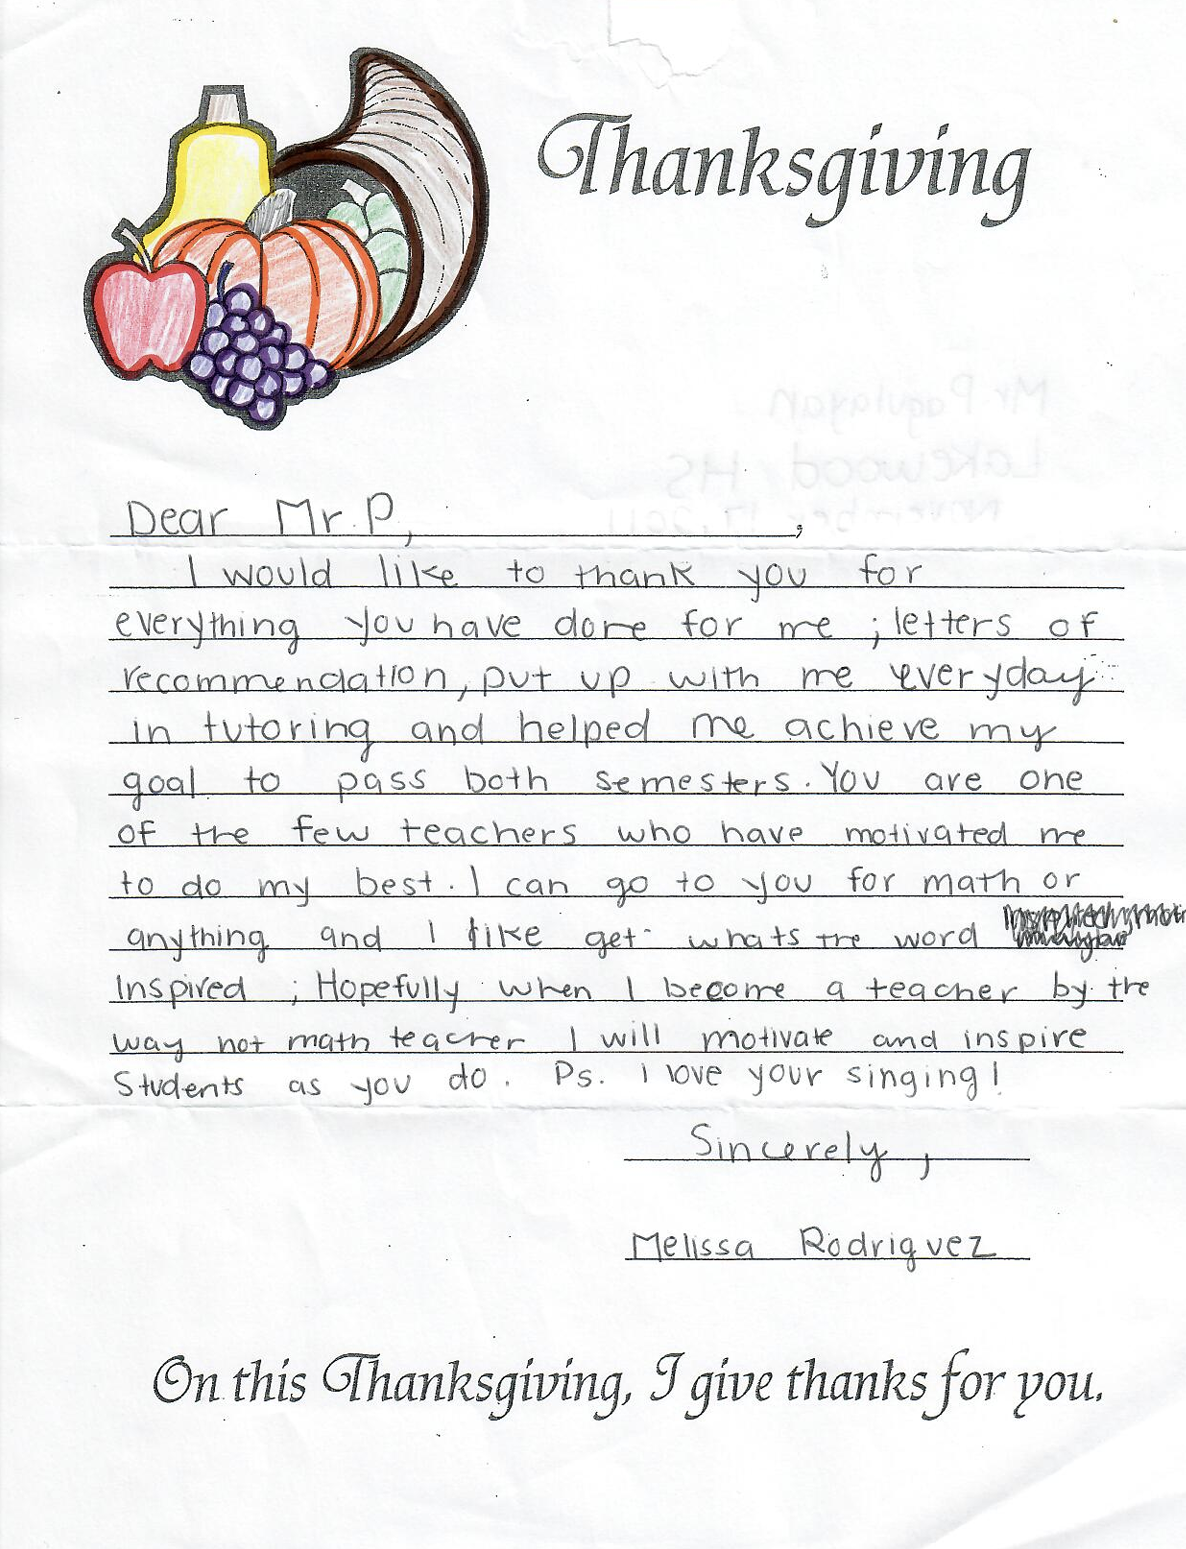 Thanksgiving
Mr Pagulayan
Lakewood HS
November 17, 2011
Dear Mr. P, ,
I would like to thank you for
everything you have done for me ; letters of
recommendation, put up with me everyday
in tutoring and helped me achieve my
goal to pass both semesters. You are one
of the few teachers who have motivated me
to do my best. I can go to you for math or
anything and I like get whats the word
Inspired ; Hopefully when I become a teacher by the
way not math teacher I will motivate and inspire
Students as you do. Ps. I love your singing!
Sincerely,
Melissa Rodriguez
On this Thanksgiving, I give thanks for you.